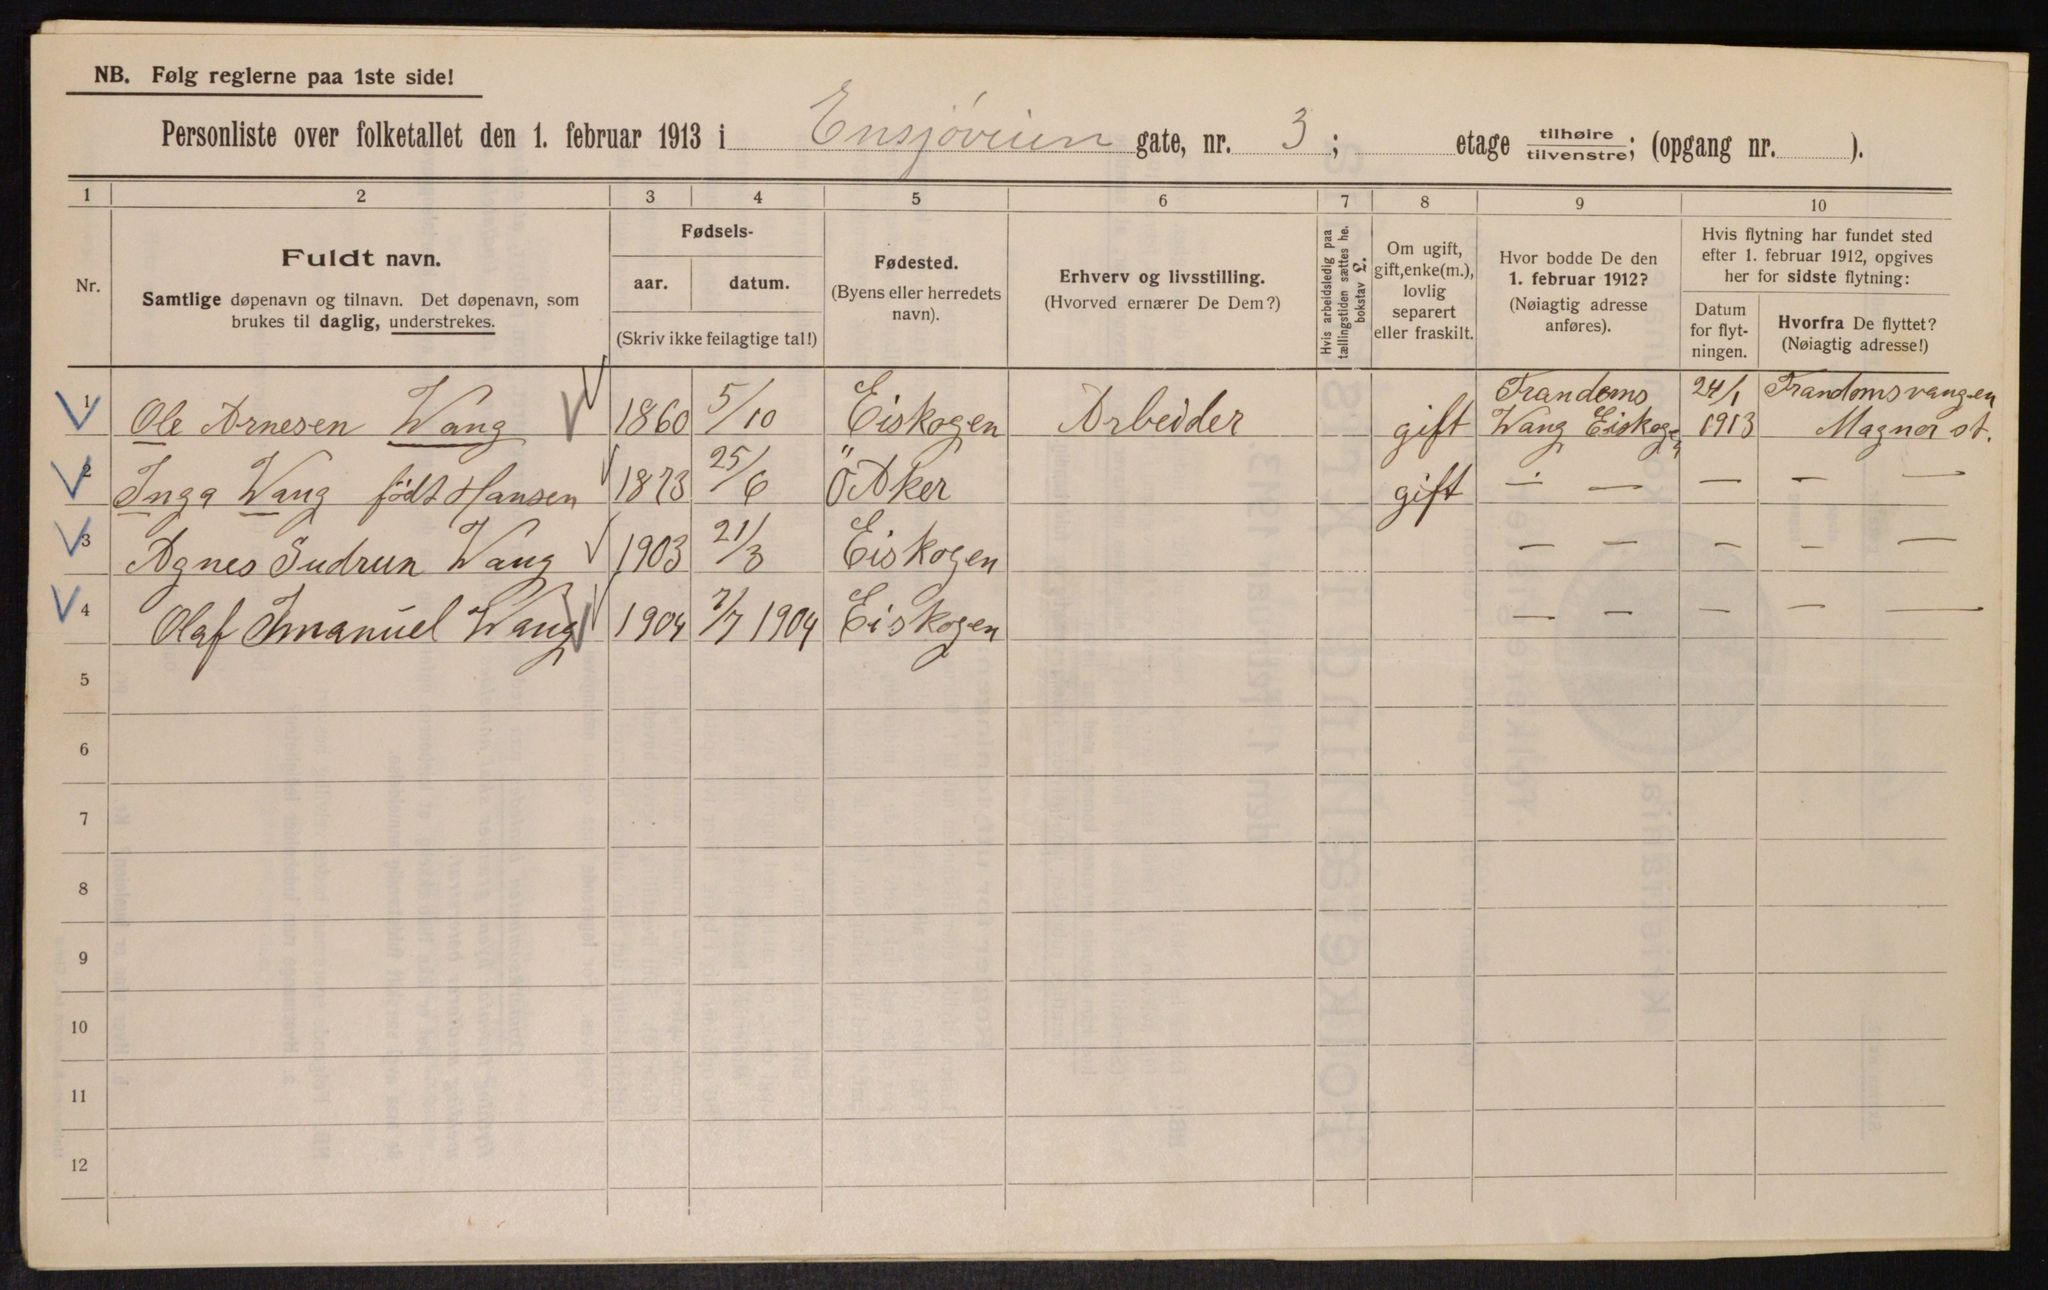 NB. Følg reglerne paa 1ste side!
Personliste over folketallet den 1. februar 1913 i Ensjøveien gate, nr. 3; etage tilhøire/tilvenstre; (opgang nr. ).
1 2 3 4 5 6 7 8 9 10
Nr.
Fuldt navn.
Samtlige døpenavn og tilnavn. Det døpenavn, som
brukes til daglig, understrekes.
Fødsels-
aar. datum.
(Skriv ikke feilagtige tal!)
Fødested.
(Byens eller herredets
navn).
Erhverv og livsstilling.
(Hvorved ernærer De Dem?)
Hvis arbeidsledig paa
tællingstiden sættes he.
bokstav L.
Om ugift,
gift, enke(m.),
lovlig
separert
eller fraskilt.
Hvor bodde De den
1. februar 1912?
(Nøiagtig adresse
anføres).
Hvis flytning har fundet sted
efter 1. februar 1912, opgives
her for sidste flytning:
Datum
for flyt-
ningen.
Hvorfra De flyttet?
(Nøiagtig adresse!)
1 Ole Arnesen Wang 1860 5/10 Eiskogen Arbeider gift Trandems Wang Eiskogen 24/1 1913 Trandomsvangen Magnor st.
2 Inga Wang født Hansen 1873 25/6 Ö Aker gift — — — — —
3 Agnes Gudrun Wang 1903 21/3 Eiskogen — — — — —
4 Olaf Imanuel Wang 1904 7/7 1904 Eiskogen — — — — —
5
6
7
8
9
10
11
12